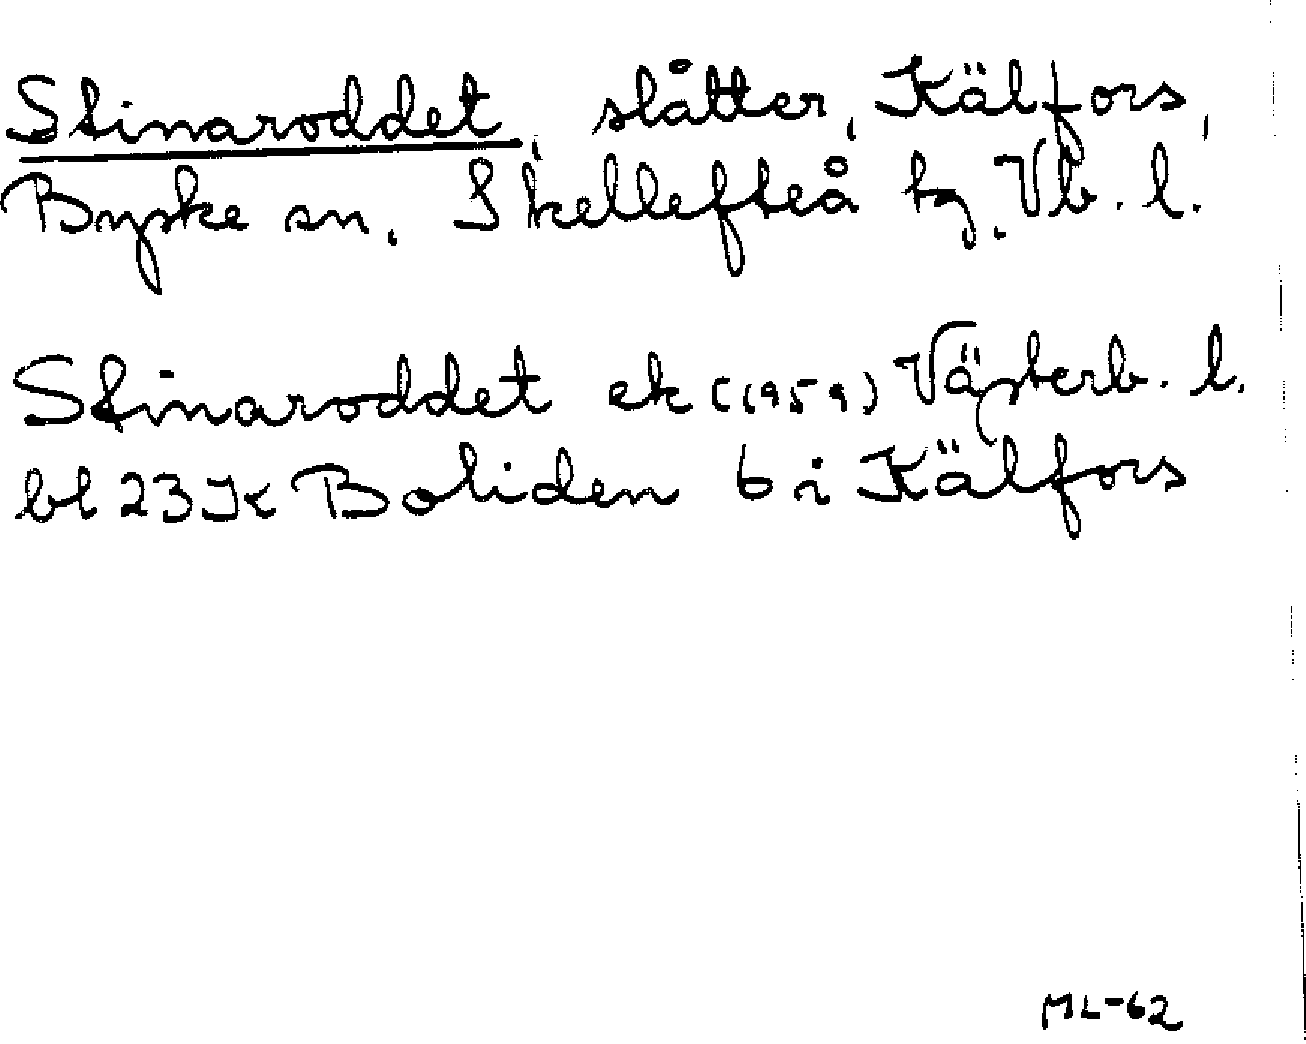 Stinaroddet, slåtter, Källfors,
Byske sn, Skellefteå tg, Vb. l.
Stinaroddet ek (1959) Västerb. l.
bl 23 K Boliden 6 i Källfors
ML-62